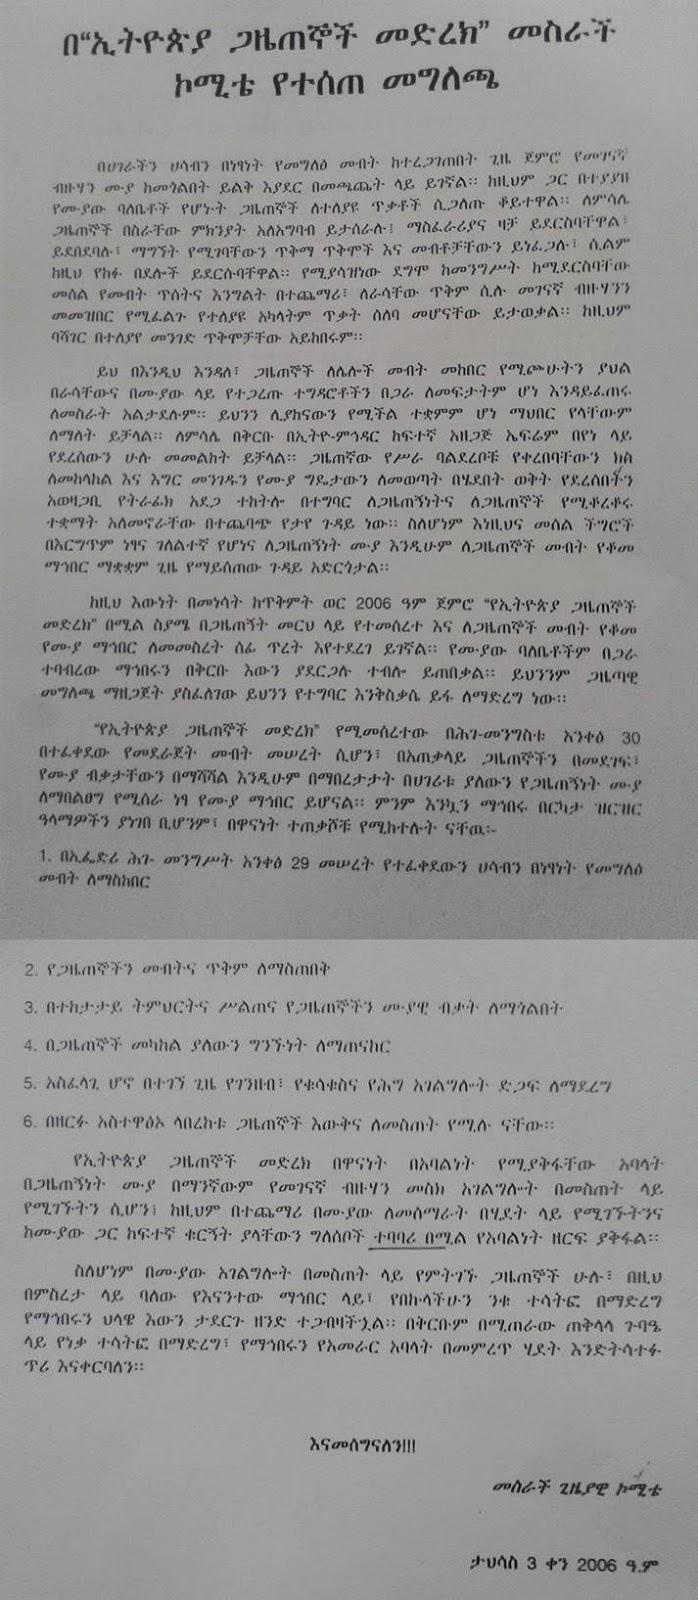 በ“ኢትዮጵያ ጋዜጠኞች መድረክ” መስራች
ኮሚቴ የተሰጠ መግለጫ
በሀገራችን ሀሳብን በነፃነት የመግለፅ መብት ከተረጋገጠበት ጊዜ ጀምሮ የመገናኛ
ብዙሃን ሙያ ከመጎልበት ይልቅ እያደር በመጫጨት ላይ ይገኛል፡፡ ከዚህም ጋር በተያያዘ
የሙያው ባለቤቶች የሆኑት ጋዜጠኞች ለተለያዩ ጥቃቶች ሲጋለጡ ቆይተዋል፡፡ ለምሳሌ
ጋዜጠኞች በስራቸው ምክንያት አለአግባብ ይታሰራሉ፤ ማስፈራሪያና ዛቻ ይደርስባቸዋል፤
ይደበደባሉ፤ ማግኘት የሚገባቸውን ጥቅማ ጥቅሞች እና መብቶቻቸውን ይነፈጋሉ፤ ሲልም
ከዚህ የከፉ በደሎች ይደርሱባቸዋል፡፡ የሚያሳዝነው ደግሞ ከመንግሥት ከሚደርስባቸው
መሰል የመብት ጥሰትና እንግልት በተጨማሪ፣ ለራሳቸው ጥቅም ሲሉ መገናኛ ብዙሃንን
መመዝበር የሚፈልጉ የተለያዩ አካላትም ጥቃት ሰለባ መሆናቸው ይታወቃል፡፡ ከዚህም
ባሻገር በተለያየ መንገድ ጥቅሞቻቸው አይከበሩም፡፡
ይህ በእንዲህ እንዳለ፣ ጋዜጠኞች ለሌሎች መብት መከበር የሚጮሁትን ያህል
በራሳቸውና በሙያው ላይ የተጋረጡ ተግዳሮቶችን በጋራ ለመፍታትም ሆነ እንዳይፈጠሩ
ለመስራት አልታደሉም፡፡ ይህንን ሊያከናውን የሚችል ተቋምም ሆነ ማህበር የላቸውም
ለማለት ይቻላል፡፡ ለምሳሌ በቅርቡ በኢትዮ-ምኅዳር ከፍተኛ አዘጋጅ ኤፍሬም በየነ ላይ
የደረሰውን ሁሉ መመልከት ይቻላል፡፡ ጋዜጠኛው የሥራ ባልደረቦቹ የቀረበባቸውን ክስ
ለመከላከል እና እግር መንገዱን የሙያ ግዴታውን ለመወጣት በሄደበት ወቅት የደረሰበትን
አወዛጋቢ የትራፊክ አደጋ ተከትሎ በተግባር ለጋዜጠኝነትና ለጋዜጠኞች የሚቆረቆሩ
ተቋማት አለመኖራቸው በተጨባጭ የታየ ጉዳይ ነው፡፡ ስለሆነም እነዚህና መሰል ችግሮች
በእርግጥም ነፃና ገለልተኛ የሆነና ለጋዜጠኝነት ሙያ እንዲሁም ለጋዜጠኞች መብት የቆመ
ማኅበር ማቋቋም ጊዜ የማይሰጠው ጉዳይ አድርጎታል፡፡
ከዚህ እውነት በመነሳት ከጥቅምት ወር 2006 ዓም ጀምሮ “የኢትዮጵያ ጋዜጠኞች
መድረክ” በሚል ስያሜ በጋዜጠኝት መርህ ላይ የተመሰረተ እና ለጋዜጠኞች መብት የቆመ
የሙያ ማኅበር ለመመስረት ሰፊ ጥረት እየተደረገ ይገኛል፡፡ የሙያው ባለቤቶችም በጋራ
ተባብረው ማኅበሩን በቅርቡ እውን ያደርጋሉ ተብሎ ይጠበቃል፡፡ ይህንንም ጋዜጣዊ
መግለጫ ማዘጋጀት ያስፈለገው ይህንን የተግባር እንቅስቃሴ ይፋ ለማድረግ ነው፡፡
“የኢትዮጵያ ጋዜጠኞች መድረክ” የሚመሰረተው በሕገ-መንግስቱ አንቀፅ 30
በተፈቀደው የመደራጀት መብት መሠረት ሲሆን፣ በአጠቃላይ ጋዜጠኞችን በመደገፍ፣
የሙያ ብቃታቸውን በማሻሻል እንዲሁም በማበረታታት በሀገሪቱ ያለውን የጋዜጠኝነት ሙያ
ለማበልፀግ የሚሰራ ነፃ የሙያ ማኅበር ይሆናል፡፡ ምንም እንኳን ማኅበሩ በርካታ ዝርዝር
ዓላማዎችን ያነገበ ቢሆንም፣ በዋናነት ተጠቃሾቹ የሚከተሉት ናቸዉ፡-
1. በኢፌድሪ ሕገ- መንግሥት አንቀፅ 29 መሠረት የተፈቀደውን ሀሳብን በነፃነት የመግለፅ
መብት ለማስከበር
2. የጋዜጠኞችን መብትና ጥቅም ለማስጠበቅ
3. በተከታታይ ትምህርትና ሥልጠና የጋዜጠኞችን ሙያዊ ብቃት ለማጎልበት
4. በጋዜጠኞች መካከል ያለውን ግንኙነት ለማጠናከር
5. አስፈላጊ ሆኖ በተገኘ ጊዜ የገንዘብ፣ የቁሳቁስና የሕግ አገልግሎት ድጋፍ ለማደረግ
6. በዘርፉ አስተዋፅኦ ላበረከቱ ጋዜጠኞች እውቅና ለመስጠት የሚሉ ናቸው፡፡
የኢትዮጵያ ጋዜጠኞች መድረክ በዋናነት በአባልነት የሚያቅፋቸው አባላት
በጋዜጠኝነት ሙያ በማንኛውም የመገናኛ ብዙሃን መስክ አገልግሎት በመስጠት ላይ
የሚገኙትን ሲሆን፤ ከዚህም በተጨማሪ በሙያው ለመሰማራት በሂደት ላይ የሚገኙትንና
ከሙያው ጋር ከፍተኛ ቁርኝት ያላቸውን ግለሰቦች ተባባሪ በሚል የአባልነት ዘርፍ ያቅፋል፡፡
ስለሆነም በሙያው አገልግሎት በመስጠት ላይ የምትገኙ ጋዜጠኞች ሁሉ፣ በዚህ
በምስረታ ላይ ባለው የእናንተው ማኅበር ላይ፣ የበኩላችሁን ንቁ ተሳትፎ በማድረግ
የማኅበሩን ህላዊ እውን ታደርጉ ዘንድ ተጋብዛችኋል፡፡ በቅርቡም በሚጠራው ጠቅላላ ጉባዔ
ላይ የነቃ ተሳትፎ በማድረግ፣ የማኅበሩን የአመራር አባላት በመምረጥ ሂደት እንድትሳተፉ
ጥሪ እናቀርባለን፡፡
እናመሰግናለን!!!
መስራች ጊዜያዊ ኮሚቴ
ታህሳስ 3 ቀን 2006 ዓ.ም